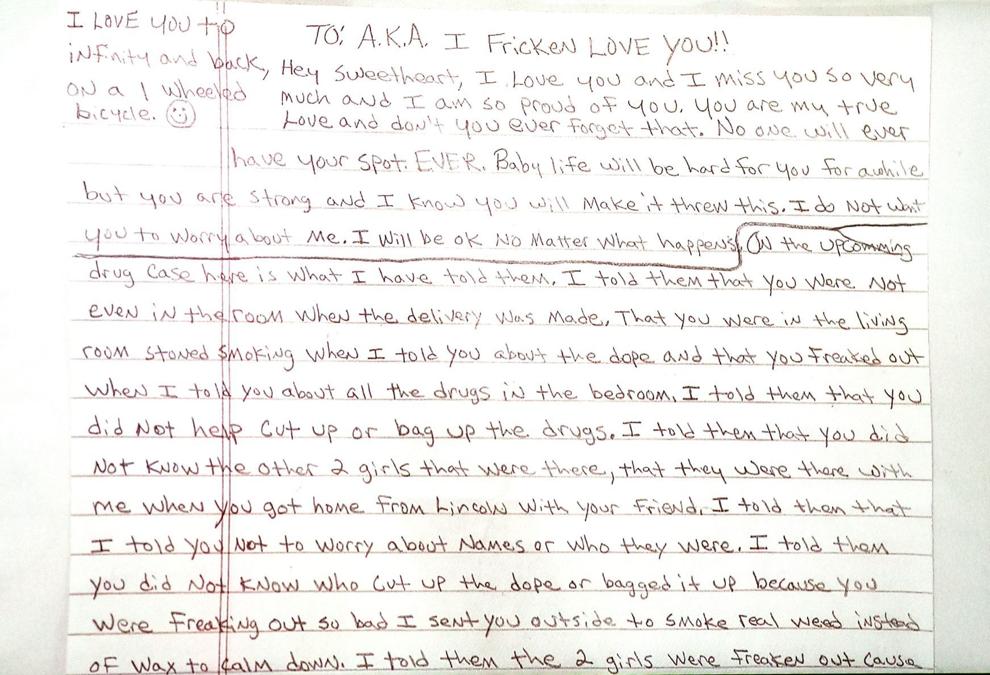 I LOVE YOU to
infinity and back,
ON a 1 wheeled
bicycle.
TO: A.K.A. I Fricken LOVE YOU!!
Hey Sweetheart, I Love you and I miss you so very
much and I am so proud of you. You are my true
Love and don't you ever forget that. No one will ever
have your spot. EVER. Baby life will be hard for you for awhile
but you are strong and I know you will make it threw this. I do Not want
you to worry about me. I will be ok No Matter what happens. ON the upcomming
drug case here is what I have told them. I told them that you were Not
even in the room when the delivery was made, That you were in the living
room stoned smoking when I told you about the dope and that you freaked out
when I told you about all the drugs in the bedroom. I told them that you
did Not help cut up or bag up the drugs. I told them that you did
Not know the other 2 girls that were there, that they were there with
me when you got home from Lincoln with your friend. I told them that
I told you Not to worry about Names or who they were. I told them
you did Not know who cut up the dope or bagged it up because you
were freaking out so bad I sent you outside to smoke real weed instead
of wax to calm down. I told them the 2 girls were freaken out cause